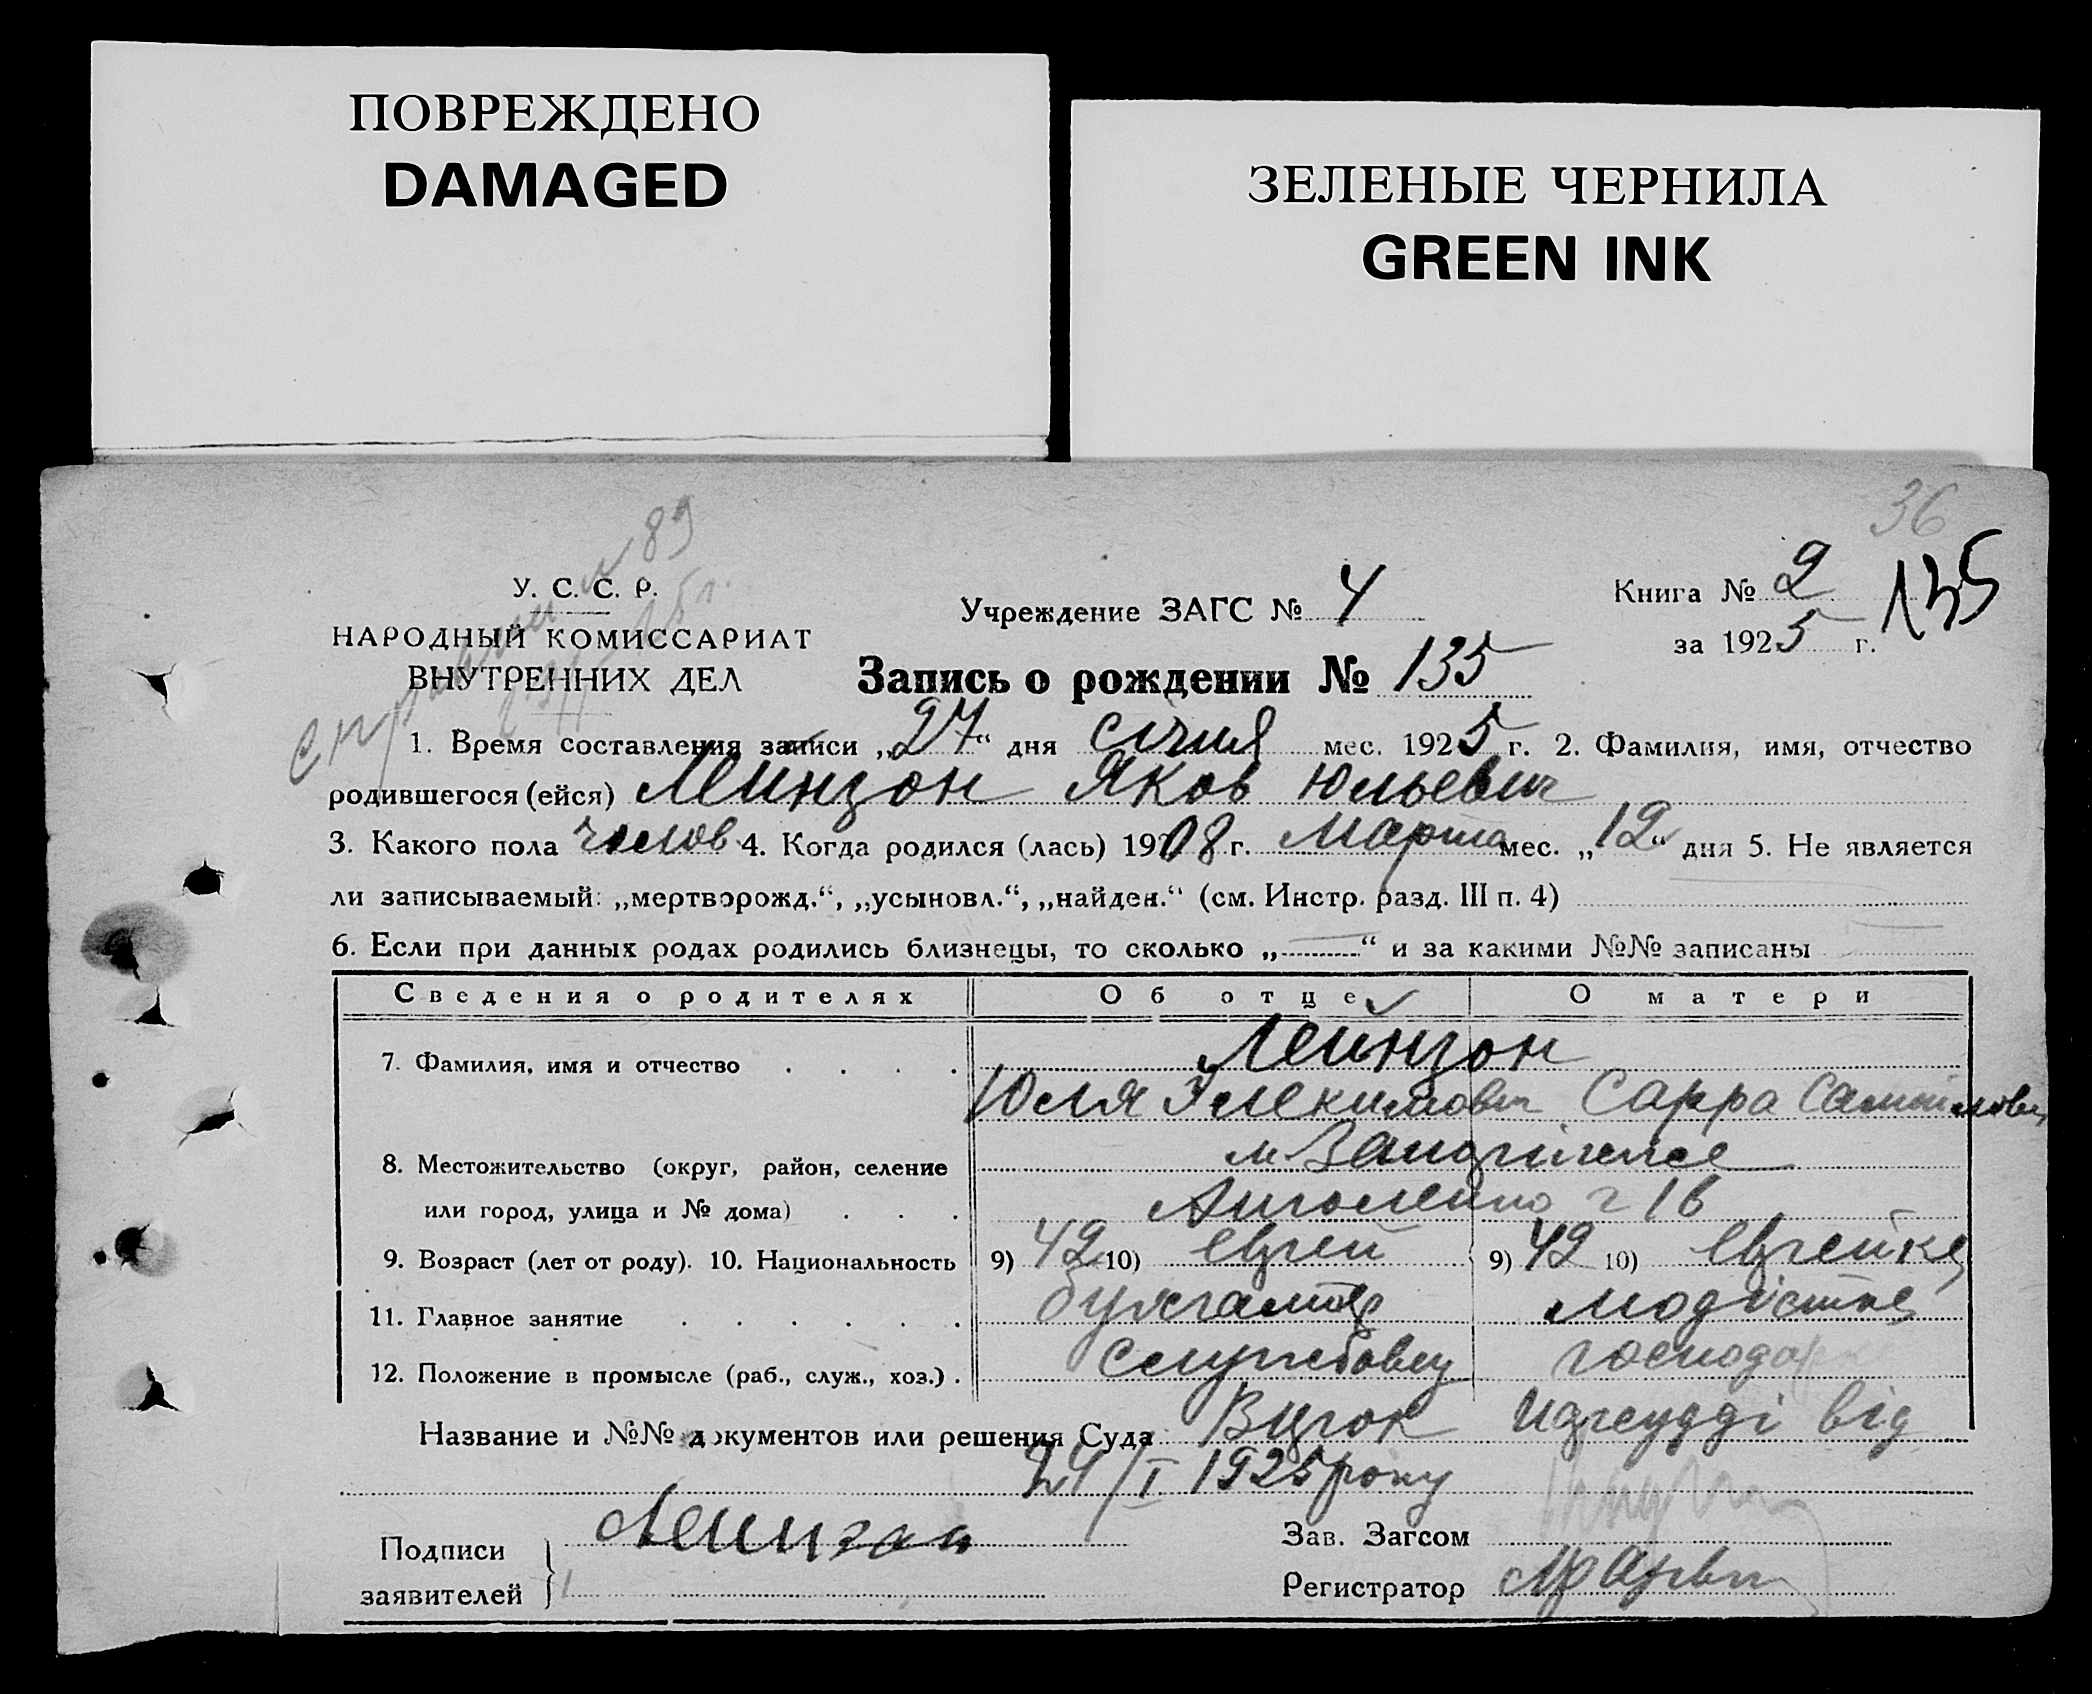 ПОВРЕЖДЕНО
DAMAGED
ЗЕЛЕНЫЕ ЧЕРНИЛА
GREEN INK
36
№ 89
У. С. С. Р.
НАРОДНЫЙ КОМИССАРИАТ
ВНУТРЕННИХ ДЕЛ
Учреждение ЗАГС № 4
Книга № 2
135
за 1925 г.
Запись о рождении № 135
1. Время составления записи „27“ дня січня мес. 1925 г. 2. Фамилия, имя, отчество
родившегося (ейся) Лейнзон Яков Юльевич
3. Какого пола чолов 4. Когда родился (лась) 1908 г. марта мес. „12“ дня 5. Не является
ли записываемый: „мертворожд.“, „усыновл.“, „найден.“ (см. Инстр. разд. III п. 4)
6. Если при данных родах родились близнецы, то сколько „—“ и за какими №№ записаны
Сведения о родителях Об отце О матери
7. Фамилия, имя и отчество Лейнзон
Юля Сарра
8. Местожительство (округ, район, селение м
или город, улица и № дома) 16
9. Возраст (лет от роду). 10. Национальность 9) 42 10) Єврей 9) 42 10) Єврейка
11. Главное занятие бухгалтер модистка
12. Положение в промысле (раб., служ., хоз.) службовец господар
Название и №№ документов или решения Суда від
24/I 1925 року
Подписи заявителей Лейнзон
Зав. Загсом
Регистратор